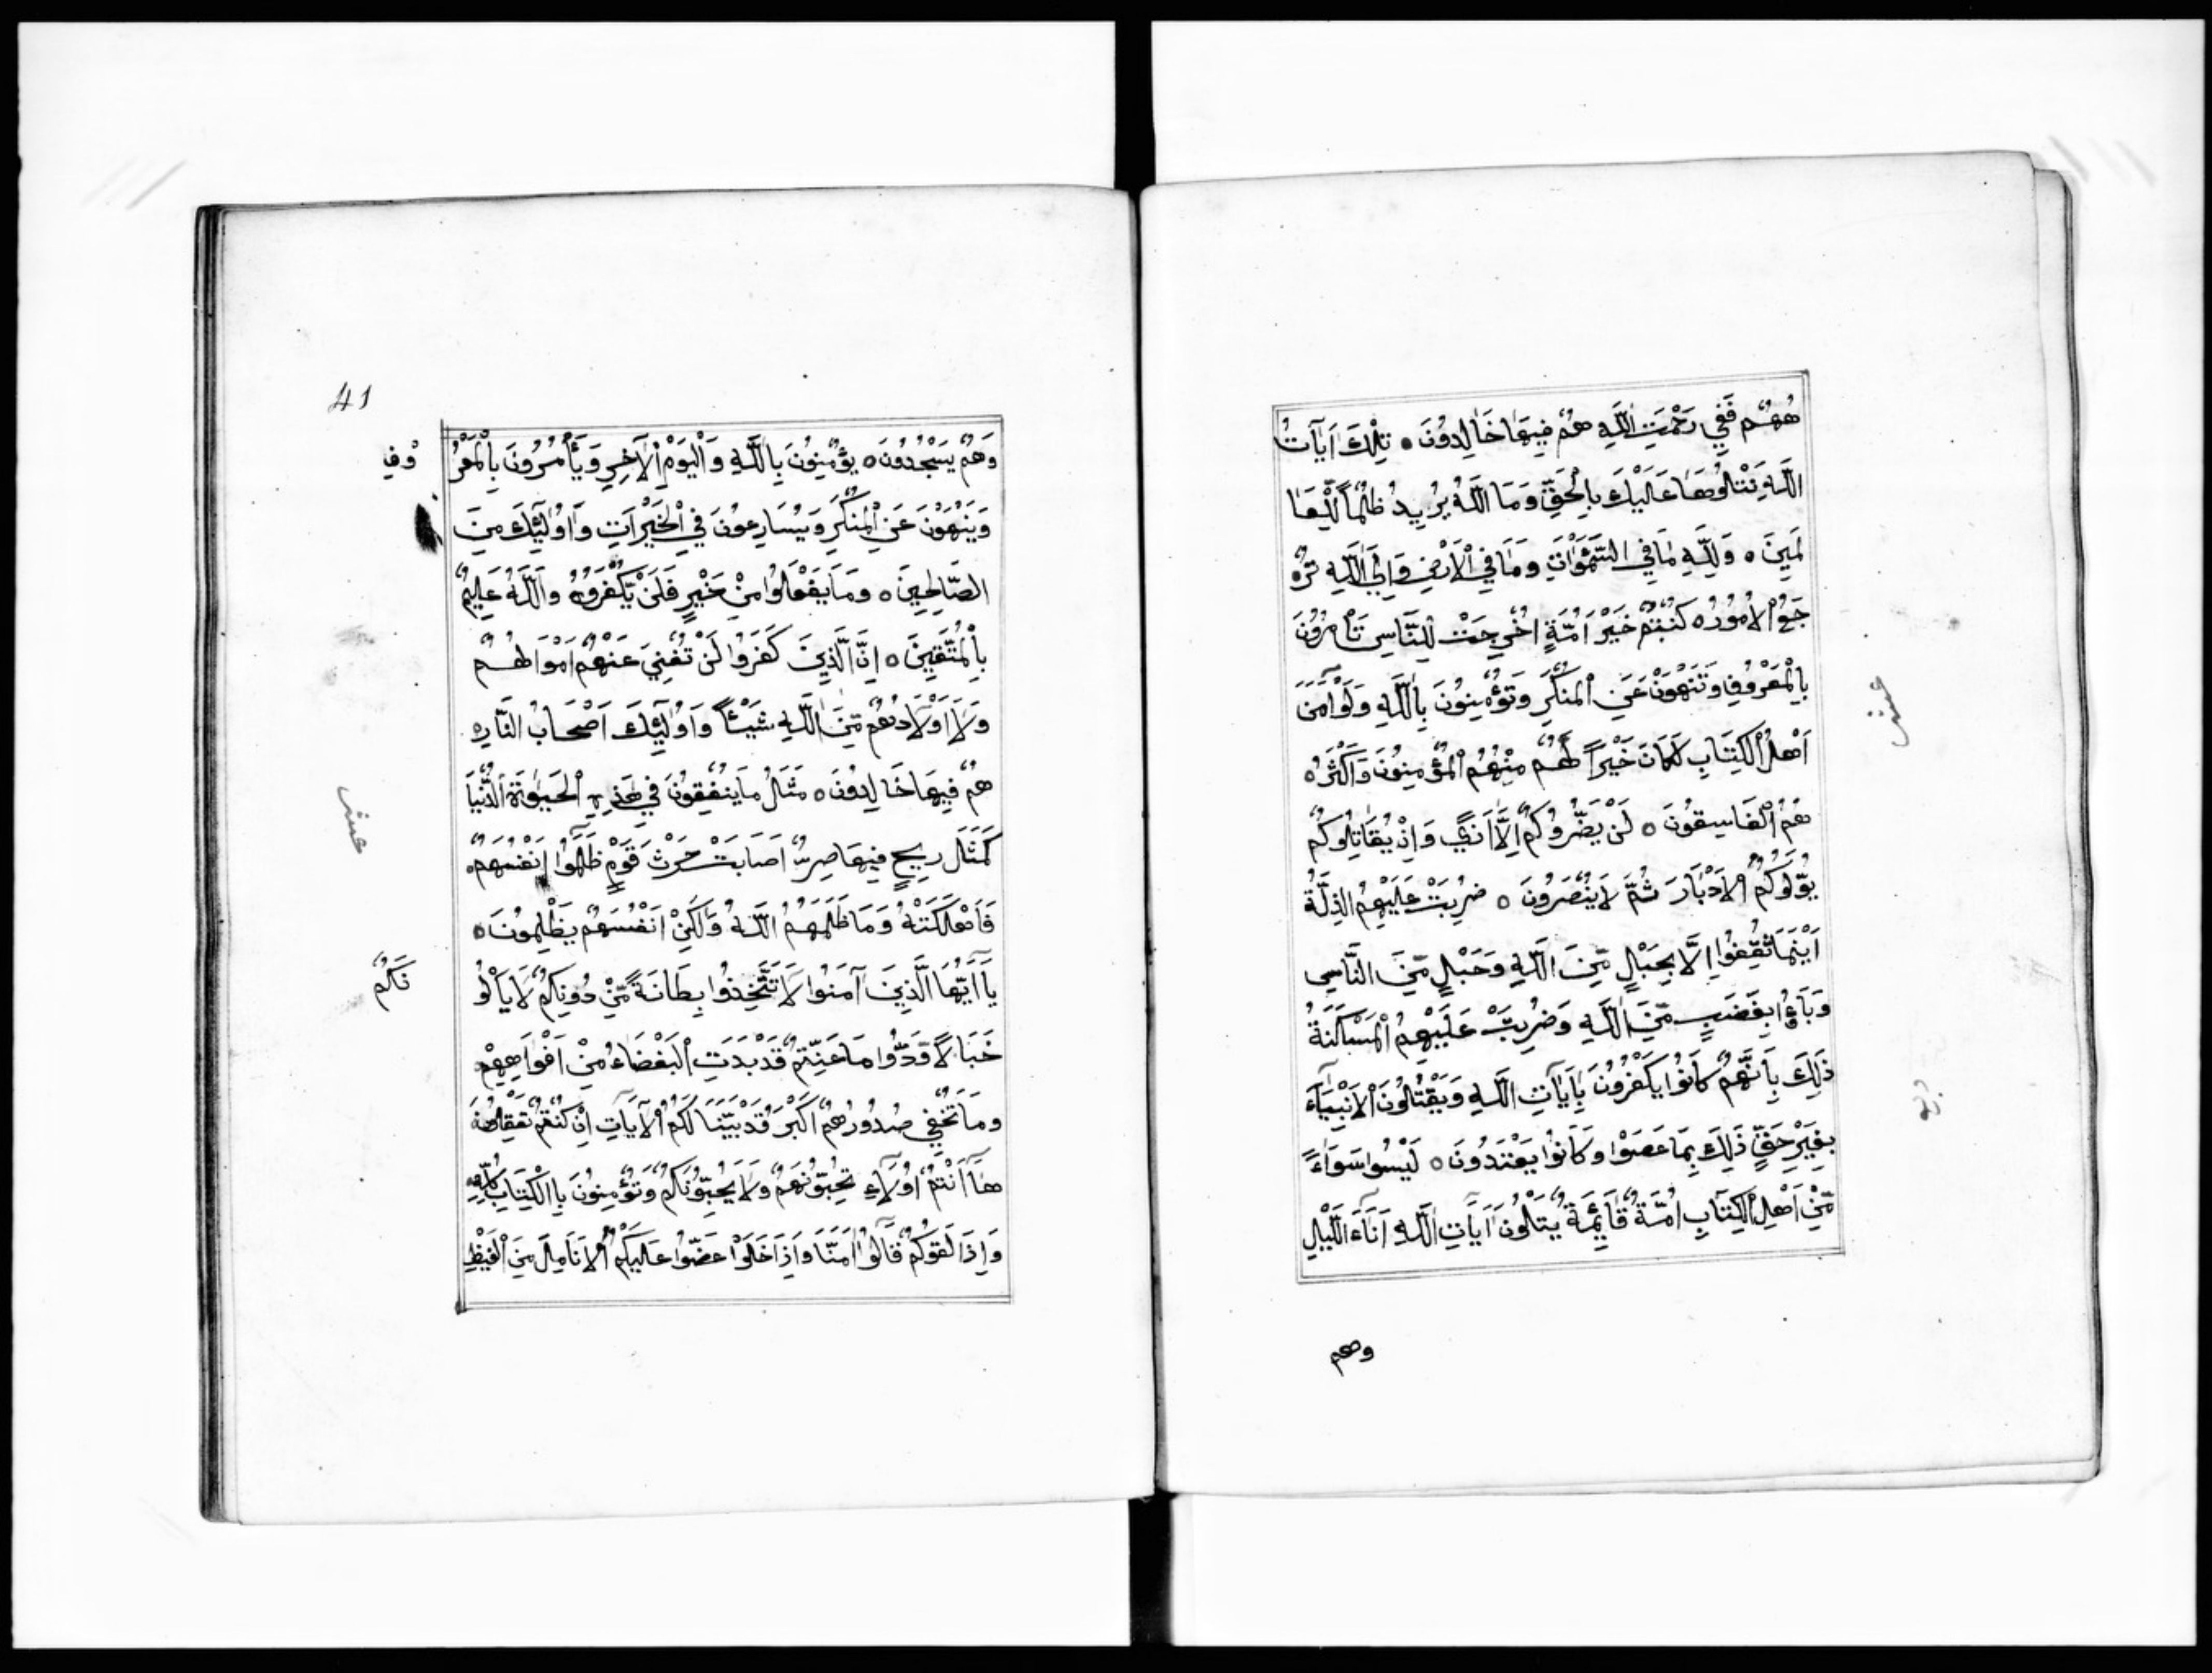 هُهُمْ فَفِي رَحْمَتِ اللَّهِ هُمْ فِيهَا خَالِدُونَ ٥ تِلْكَ اَيَآتُ
اللَّهِ نَتْلُوُهَا عَلَيْكَ بِالْحَقِّ وَمَا اللَّهُ يُرِيدُ ظُلْمًا لِّلْعَا
لَمِينَ ٥ وَلِلَّهِ مَا فِي السَّمَوَاتِ وَمَا فِي الْاَرْضِ وَاِلَى اللَّهِ تُرْ
جَعُ الْاُمُورُ ٥ كُنْتُمْ خَيْرَ اُمَّةٍ اُخْرِجَتْ لِلنَّاسِ تَاْمُرُونَ
بِالْمَعْرُوفِ وَتَنْهَوْنَ عَنِ الْمُنْكَرِ وَتُؤْمِنُونَ بِاللَّهِ وَلَوْ آمَنَ
اَهْلُ الْكِتَابِ لَكَانَ خَيْرًا لَّهُمْ مِنْهُمُ الْمُؤْمِنُونَ وَاَكْثَرُهُ
هُمُ الْفَاسِقُونَ ٥ لَنْ يَضُرُّوُكُمْ اِلَّا اَذًى وَاِنْ يُقَاتِلُوكُمْ
يُوَلُّوكُمُ الْاَدْبَارَ ثُمَّ لَا يُنْصَرُونَ ٥ ضُرِبَتْ عَلَيْهِمُ الذِّلَّةُ
اَيْنَمَا ثُقِفُوا اِلَّا بِحَبْلٍ مِّنَ اللَّهِ وَحَبْلٍ مِّنَ النَّاسِ
وَبَاؤُا بِغَضَبٍ مِّنَ اللَّهِ وَضُرِبَتْ عَلَيْهِمُ الْمَسْكَنَةُ
ذَلِكَ بِاَنَّهُمْ كَانُوا يَكْفُرُونَ بِاَيَآتِ اللَّهِ وَيَقْتُلُونَ الْاَنْبِيَآءَ
بِغَيْرِ حَقٍّ ذَلِكَ بِمَا عَصَوْا وَكَانُوا يَعْتَدُونَ ٥ لَيْسُوا سَوَاءً
مِّنْ اَهْلِ الْكِتَابِ اُمَّةٌ قَآئِمَةٌ يَتْلُونَ اَيَآتِ اللَّهِ اَنَآءَ اللَّيْلِ
وهم
41
وَهُمْ يَسْجُدُونَ ٥ يُؤْمِنُونَ بِاللَّهِ وَالْيَوْمِ الْآخِرِ وَيَأْمُرُونَ بِالْمَعْرُ
وْفِ
وَيَنْهَوْنَ عَنِ الْمُنْكَرِ وَيُسَارِعُونَ فِي الْخَيْرَاتِ وَاُولَئِكَ مِنَ
الصَّالِحِينَ ٥ وَمَا يَفْعَلُوا مِنْ خَيْرٍ فَلَنْ يُكْفَرُوهُ وَاللَّهُ عَلِيمٌ
بِالْمُتَّقِينَ ٥ اِنَّ الَّذِينَ كَفَرُوا لَنْ تُغْنِيَ عَنْهُمْ اَمْوَالُهُمْ
وَلَا اَوْلَادُهُمْ مِّنَ اللَّهِ شَيْئًا وَاُولَئِكَ اَصْحَابُ النَّارِ
هُمْ فِيهَا خَالِدُونَ ٥ مَثَلُ مَا يُنْفِقُونَ فِي هَذِهِ الْحَيَوٰةِ الدُّنْيَا
كَمَثَلِ رِيحٍ فِيهَا صِرٌّ اَصَابَتْ حَرْثَ قَوْمٍ ظَلَمُوا اَنْفُسَهُمْ
فَاَهْلَكَتْهُ وَمَا ظَلَمَهُمُ اللَّهُ وَلَكِنْ اَنْفُسَهُمْ يَظْلِمُونَ ٥
يَا اَيُّهَا الَّذِينَ آمَنُوا لَا تَتَّخِذُوا بِطَانَةً مِّنْ دُونِكُمْ لَا يَاْلُو
نَكُمْ
خَبَالًا وَدُّوا مَا عَنِتُّمْ قَدْ بَدَتِ الْبَغْضَاءُ مِنْ اَفْوَاهِهِمْ
وَمَا تُخْفِي صُدُورُهُمْ اَكْبَرُ قَدْ بَيَّنَّا لَكُمُ الْآيَاتِ اِنْ كُنْتُمْ تَعْقِلُونَ
هَآ اَنْتُمْ اُولَآءِ تُحِبُّونَهُمْ وَلَا يُحِبُّونَكُمْ وَتُؤْمِنُونَ بِاالْكِتَابِ كُلِّهِ
وَاِذَا لَقُوكُمْ قَالُوا آمَنَّا وَاِذَا خَلَوْا عَضُّوا عَلَيْكُمُ الْاَنَامِلَ مِنَ الْغَيْظِ